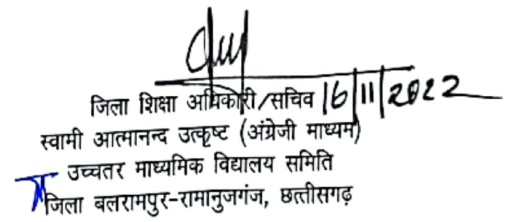 जिला शिक्षा अधिकारी/सचिव 16/11/2022
स्वामी आत्मानन्द उत्कृष्ट (अंग्रेजी माध्यम)
उच्चतर माध्यमिक विद्यालय समिति
जिला बलरामपुर-रामानुजगंज, छत्तीसगढ़